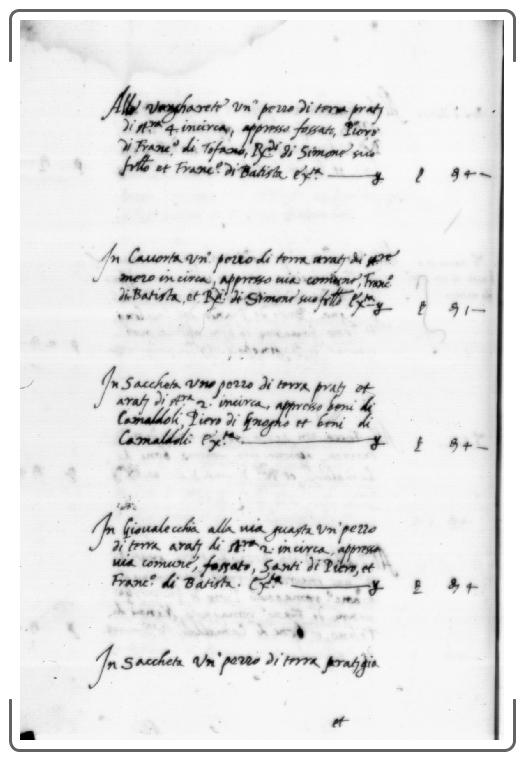 Alle vangharete un° pezzo di terra prati
di st.ra 4 incirca, appresso fossato, Piero
di Franc.° di Tofano, Rdi di Simone suo
frllo et Franc.° di Batista &xta. £ 4 —
In Cavorta un° pezzo di terra arati di st.re
mezo incirca, appresso via comune, Franc.°
di Batista, et Rdi di Simone suo frllo &xta £ 1 —
In Saccheta uno pezzo di terra prati et
arati di st.ra 2. incirca, appresso beni di
Camaldoli, Piero di Gnogno et beni di
Camaldoli. &xta. £ 4 —
In Giovalecchia alla via guasta un° pezzo
di terra arati di st.ra 2. incirca, appresso
via comune, fossato, Santi di Piero, et
Franc.° di Batista. &xta £ 4
In Saccheta un° pezzo di terra prati gia
et